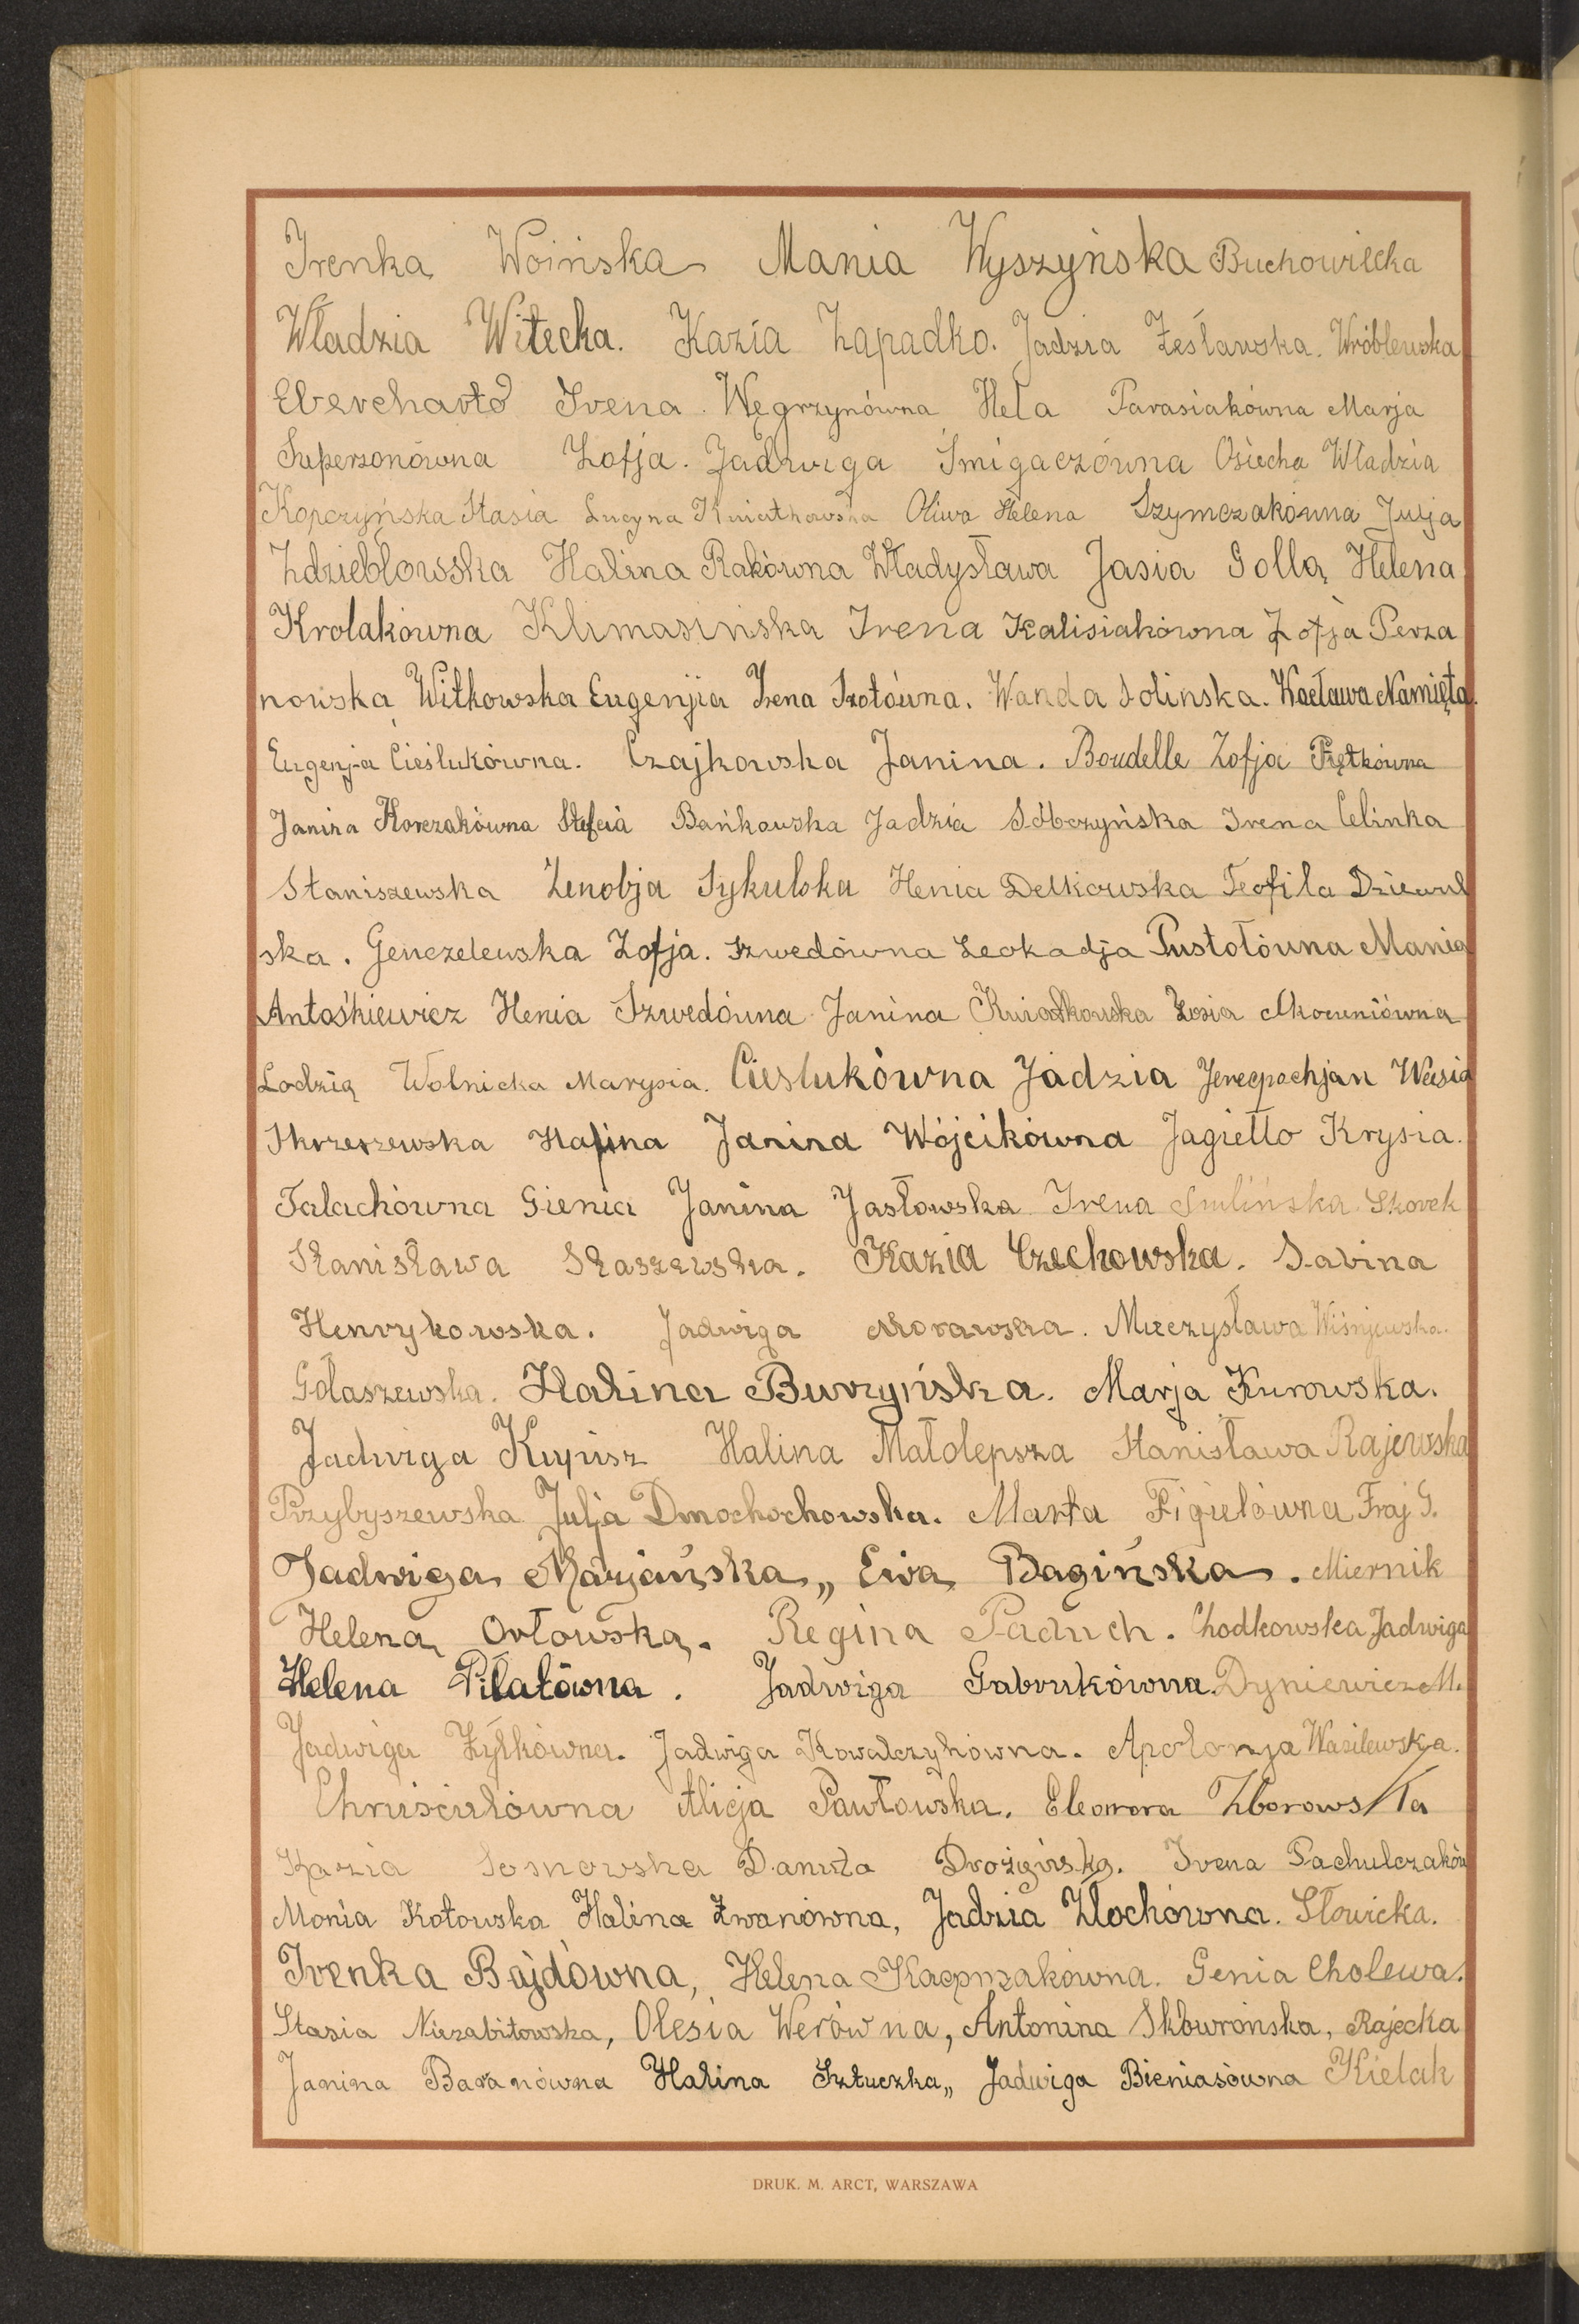 Irenka Woińska Mania Wyszyńska Buchowiecka
Władzia Witecka. Kazia Zapadko. Jadzia Żesławska. Wróblewska
Eberchartd Irena. Węgrzynówna Hela Parasiakówna Marja
Supersonówna Zofja. Jadwiga Śmigaczówna Osiecha Władzia
Kopczyńska Stasia Lucyna Kwiatkowska Oliwa Helena Szymczakówna Julja
Zdziebłowska Halina Rakówna Władysława Jasia Golla Helena
Krolakówna Klimasińska Irena Kalisiakówna Zofja Perza
nowska Witkowska Eugenjia Irena Szotówna. Wanda Solinska. Wacława Namięta.
Eugenja Cieślukówna. Czajkowska Janina. Boudelle Zofja Piętkówna
Janina Korczakówna Stefcia Bańkowska Jadzia Sobczyńska Irena Celinka
Staniszewska Zenobja Sykulska Henia Delkowska Teofila Dziewul
ska. Genczelewska Zofja. Szwedówna Leokadja Pustołówna Mania
Antośkiewicz Henia Szwedówna Janina Kwiatkowska Zosia
Lodzia Wolnicka Marysia. Cieslukówna Jadzia Wasia
Skrzeszewska Halina Janina Wójcikówna Jagiełło Krysia.
Talachówna Gienia Janina Jasłowska Irena Smlińska. Skorek
Stanisława Staszewska. Kazia Czechowska. Sabina
Henrykowska. Jadwiga Morawska. Mieczysława Wiśnjewska.
Gołaszewska. Halina Burzyńska. Marja Kurowska.
Jadwiga Kupisz Halina Małolepsza Stanisława Rajewska
Przybyszewska Julja Dmochochowska. Marta Figielówna Fraj G.
Jadwiga Marjańska,, Ewa Bagińska. Miernik
Helena Orłowska. Regina Paduch. Chodkowska Jadwiga
Helena Piłatówna. Jadwiga Gabrukówna. Dyniewicz M.
Jadwiga Żyłkówna. Jadwiga Kowalczykówna. Apolonja Wasilewska.
Chruściułówna Alicja Pawłowska. Eleonora Zborowska
Kazia Sosnowska Danuta Irena Pachulczaków
Monia Kotowska Halina Iwanówna, Jadzia Złochówna. Słowicka.
Irenka Bajdówna, Helena Kacprzakówna. Genia Cholewa.
Stasia Niezabitowska, Olesia Werówna, Antonina Skowrońska, Rajecka
Janina Baranówna Halina Sztuczka,, Jadwiga Bieniasówna Kielak
DRUK. M. ARCT, WARSZAWA